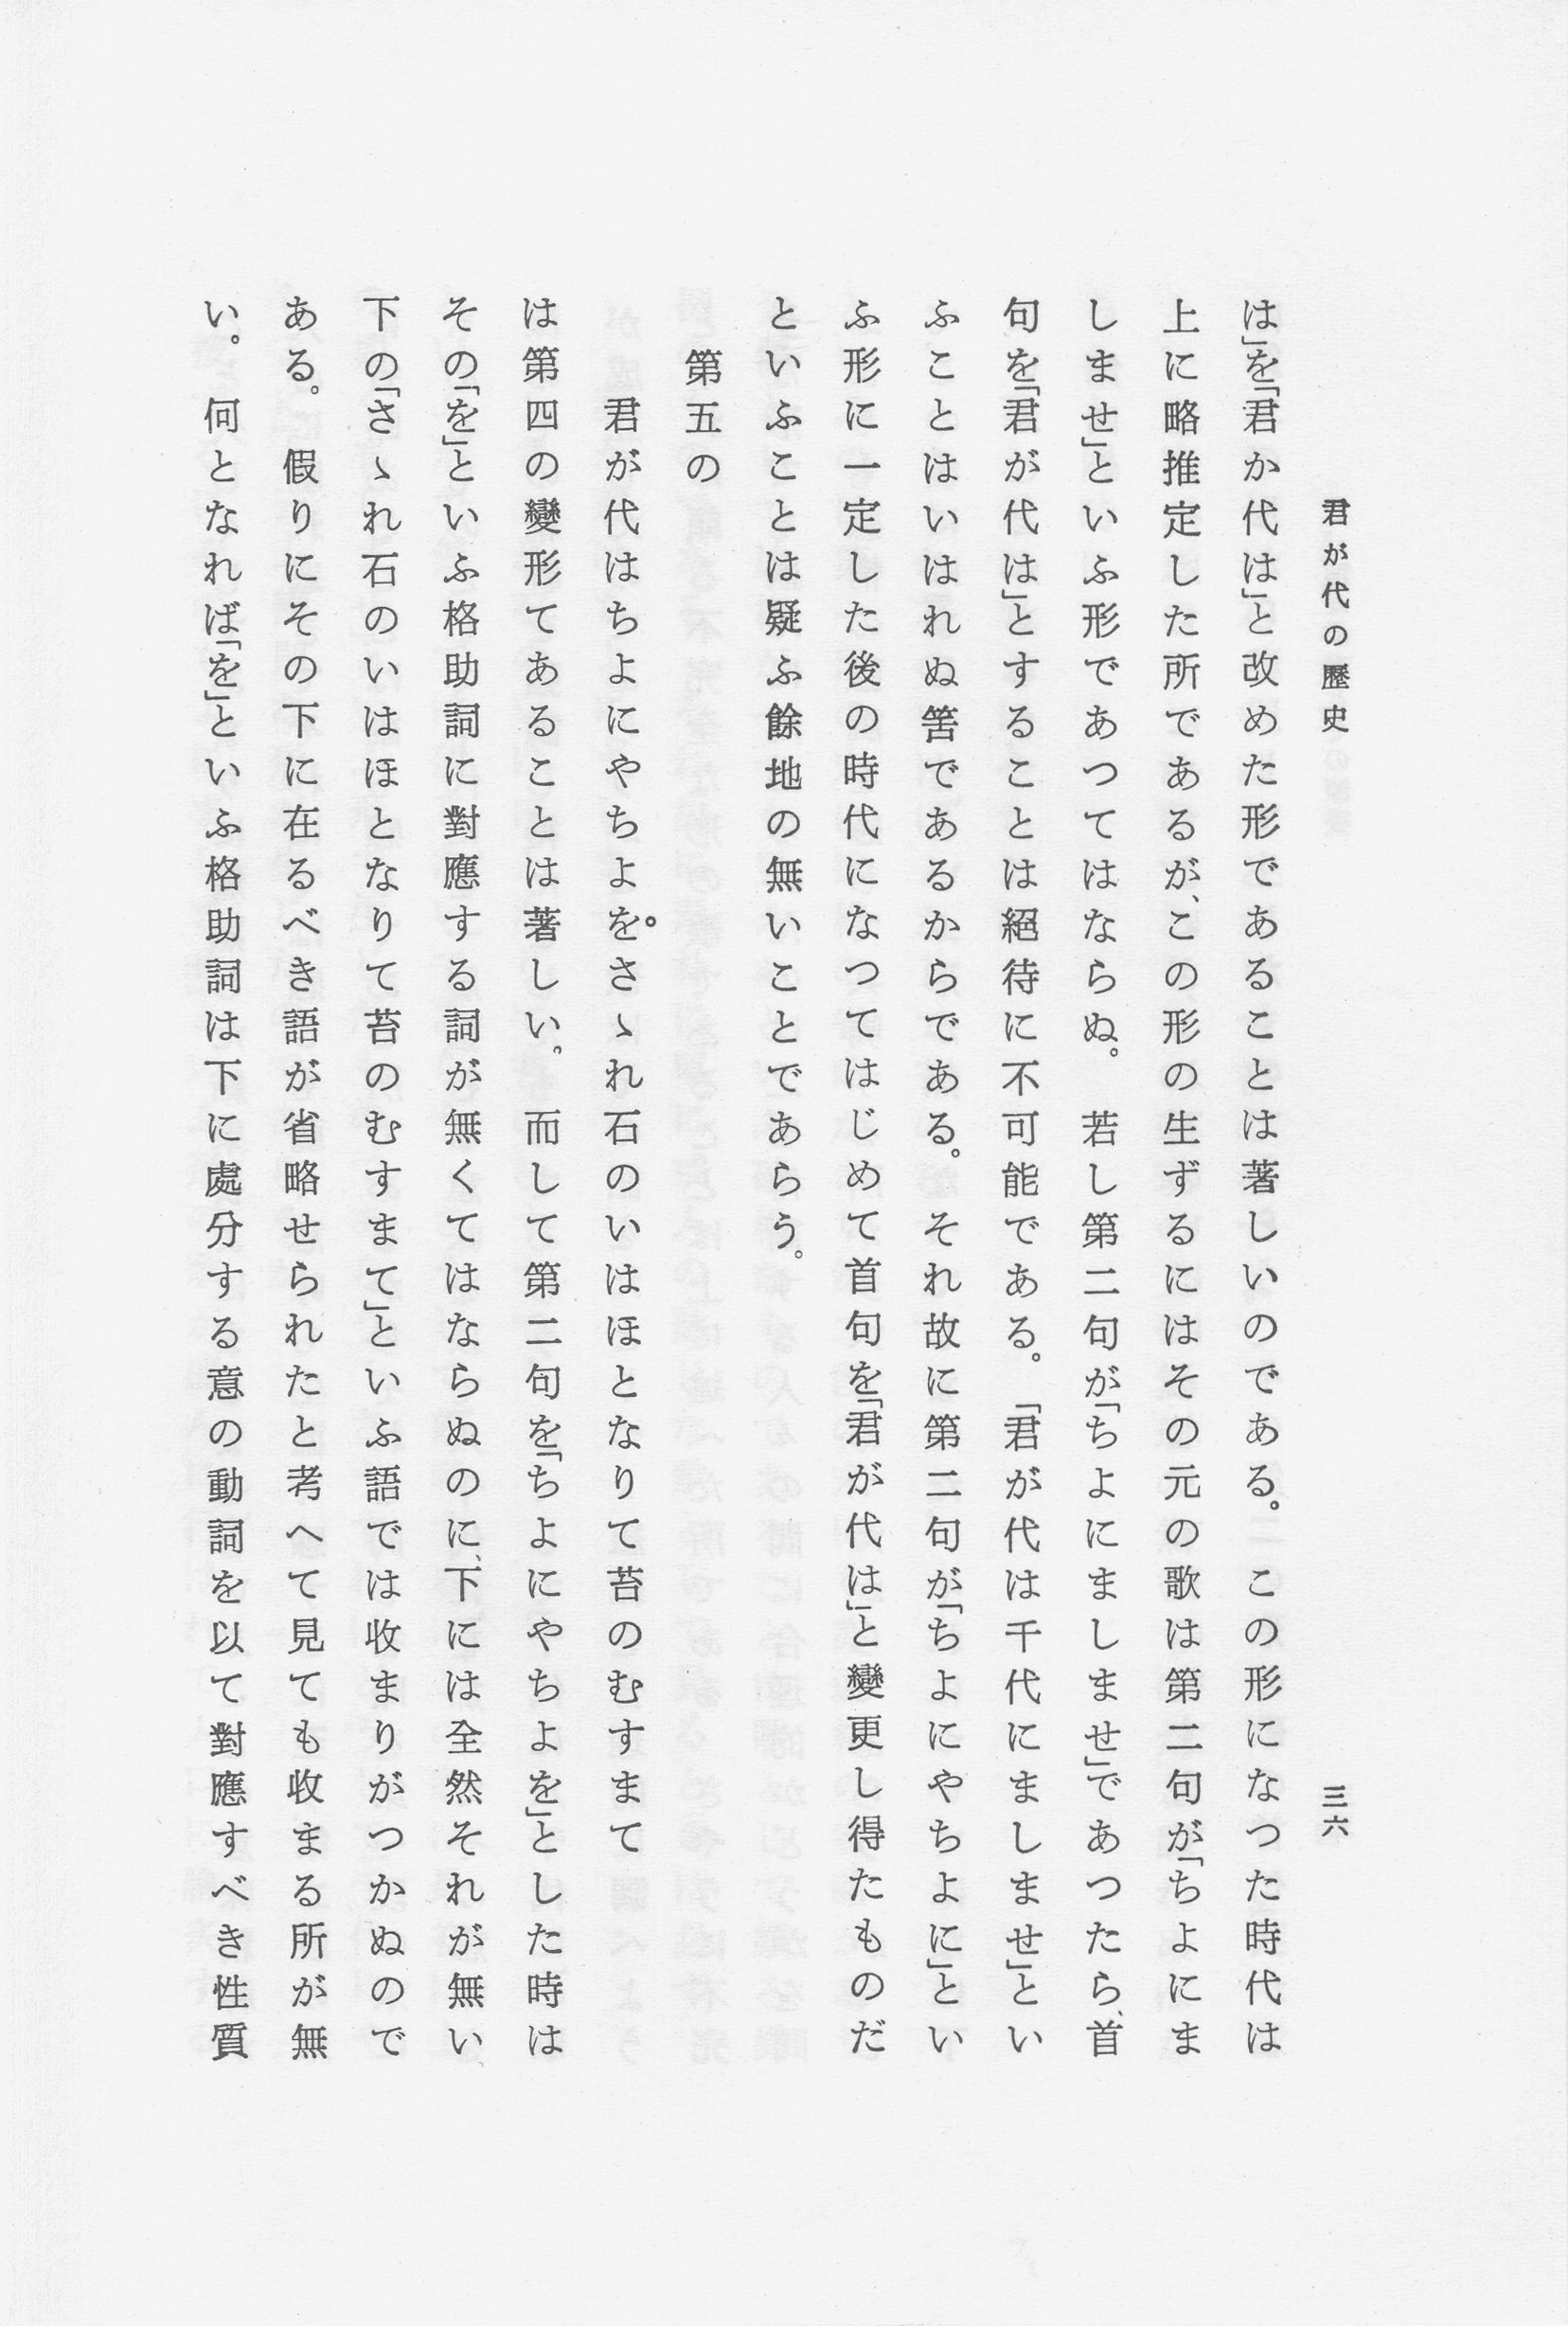 君が代の歷史
三六
は」を「君か代は」と改めた形であることは著しいのである。この形になつた時代は
上に略推定した所であるが、この形の生ずるにはその元の歌は第二句が「ちよにま
しませ」といふ形であつてはならぬ。若し第二句が「ちよにましませ」であつたら、首
句を「君が代は」とすることは絕待に不可能である。「君が代は千代にましませ」とい
ふことはいはれぬ筈であるからである。それ故に第二句が「ちよにやちよに」とい
ふ形に一定した後の時代になつてはじめて首句を「君が代は」と變更し得たものだ
といふことは疑ふ餘地の無いことであらう。
第五の
君が代はちよにやちよをさゝれ石のいはほとなりて苔のむすまて
は第四の變形てあることは著しい。而して第二句を「ちよにやちよを」とした時は
その「を」といふ格助詞に對應する詞が無くてはならぬのに、下には全然それが無い、
下の「さゝれ石のいはほとなりて苔のむすまて」といふ語では收まりがつかぬので
ある。假りにその下に在るべき語が省略せられたと考へて見ても收まる所が無
い。何となれば「を」といふ格助詞は下に處分する意の動詞を以て對應すべき性質